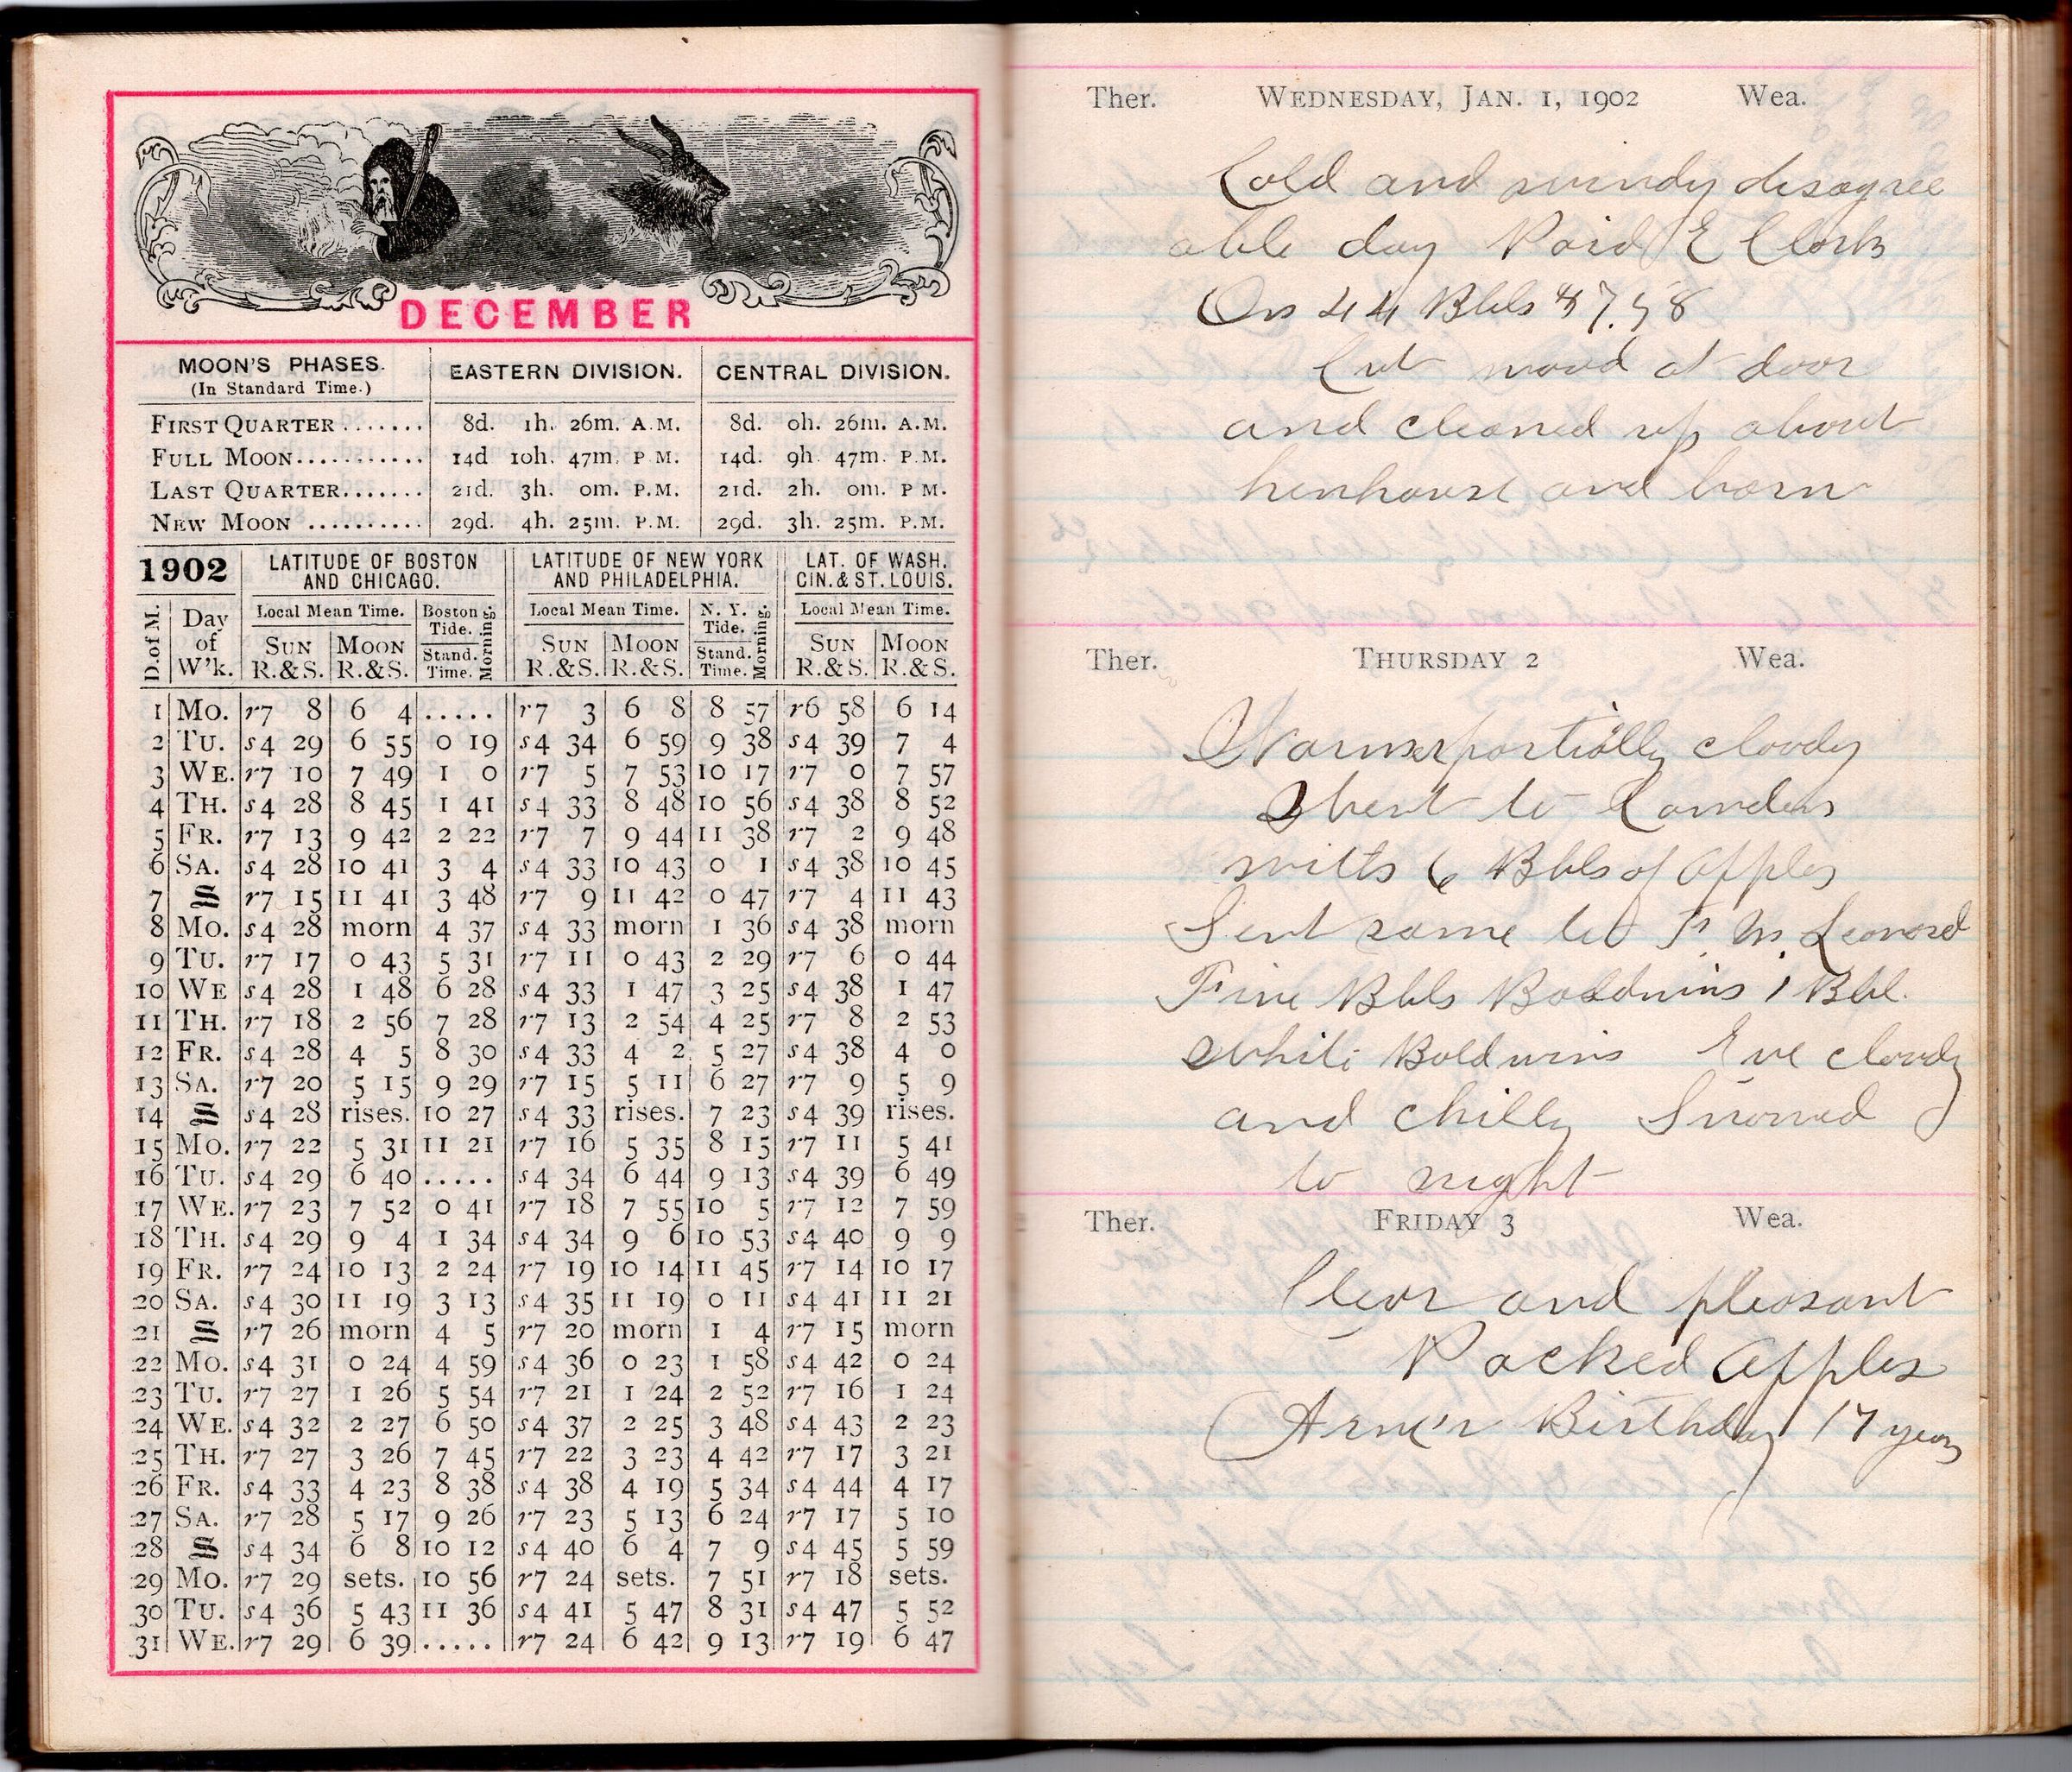 DECEMBER
MOON'S PHASES. EASTERN DIVISION. CENTRAL DIVISION.
(In Standard Time.)
FIRST QUARTER ....... 8d. 1h. 26m. A.M. 8d. 0h. 26m. A.M.
FULL MOON........... 14d 10h. 47m. P M. 14d. 9h. 47m. P.M.
LAST QUARTER....... 21d. 3h. 0m. P.M. 21d. 2h. 0m. P M.
NEW MOON .......... 29d. 4h. 25m. P.M. 29d. 3h. 25m. P.M.
1902 LATITUDE OF BOSTON AND CHICAGO. LATITUDE OF NEW YORK AND PHILADELPHIA. LAT. OF WASH. CIN. & ST. LOUIS.
D. of M. Day of W'k. Local Mean Time. Boston Tide. Morning. Local Mean Time. N. Y. Tide. Morning. Local Mean Time.
SUN R.&S. MOON R.&S. Stand. Time. SUN R.&S. MOON R.&S. Stand. Time. SUN R.&S. MOON R.&S.
1 MO. r7 8 6 4 ..... r7 3 6 8 8 57 r6 58 6 14
2 TU. s4 29 6 55 0 19 s4 34 6 59 9 38 s4 39 7 4
3 WE. r7 10 7 49 1 0 r7 5 7 53 10 17 r7 0 7 57
4 TH. s4 28 8 45 1 41 s4 33 8 48 10 56 s4 38 8 52
5 FR. r7 13 9 42 2 22 r7 7 9 44 11 38 r7 2 9 48
6 SA. s4 28 10 41 3 4 s4 33 10 43 0 1 s4 38 10 45
7 S r7 15 11 41 3 48 r7 9 11 42 0 47 r7 4 11 43
8 MO. s4 28 morn 4 37 s4 33 morn 1 36 s4 38 morn
9 TU. r7 17 0 43 5 31 r7 11 0 43 2 29 r7 6 0 44
10 WE s4 28 1 48 6 28 s4 33 1 47 3 25 s4 38 1 47
11 TH. r7 18 2 56 7 28 r7 13 2 54 4 25 r7 8 2 53
12 FR. s4 28 4 5 8 30 s4 33 4 2 5 27 s4 38 4 0
13 SA. r7 20 5 15 9 29 r7 15 5 11 6 27 r7 9 5 9
14 S s4 28 rises. 10 27 s4 33 rises. 7 23 s4 39 rises.
15 MO. r7 22 5 31 11 21 r7 16 5 35 8 15 r7 11 5 41
16 TU. s4 29 6 40 ..... s4 34 6 44 9 13 s4 39 6 49
17 WE. r7 23 7 52 0 41 r7 18 7 55 10 5 r7 12 7 59
18 TH. s4 29 9 4 1 34 s4 34 9 6 10 53 s4 40 9 9
19 FR. r7 24 10 13 2 24 r7 19 10 14 11 45 r7 14 10 17
20 SA. s4 30 11 19 3 13 s4 35 11 19 0 11 s4 41 11 21
21 S r7 26 morn 4 5 r7 20 morn 1 4 r7 15 morn
22 MO. s4 31 0 24 4 59 s4 36 0 23 1 58 s4 42 0 24
23 TU. r7 27 1 26 5 54 r7 21 1 24 2 52 r7 16 1 24
24 WE. s4 32 2 27 6 50 s4 37 2 25 3 48 s4 43 2 23
25 TH. r7 27 3 26 7 45 r7 22 3 23 4 42 r7 17 3 21
26 FR. s4 33 4 23 8 38 s4 38 4 19 5 34 s4 44 4 17
27 SA. r7 28 5 17 9 26 r7 23 5 13 6 24 r7 17 5 10
28 S s4 34 6 8 10 12 s4 40 6 4 7 9 s4 45 5 59
29 MO. r7 29 sets. 10 56 r7 24 sets. 7 51 r7 18 sets.
30 TU. s4 36 5 43 11 36 s4 41 5 47 8 31 s4 47 5 52
31 WE. r7 29 6 39 ..... r7 24 6 42 9 13 r7 19 6 47
Ther. WEDNESDAY, JAN. 1, 1902 Wea.
Cold and windy disagree
able day Paid E Clark
On 44 Bbls $7.58
Cut wood at door
and cleaned up about
henhouse and barn
Ther. THURSDAY 2 Wea.
Warmer partially cloudy
Went to Camden
with 6 Bbls of Apples
Sent same to F. M. Leonard
Five Bbls Baldwins 1 Bbl.
white Baldwins Eve cloudy
and chilly Snowed
to night
Ther. FRIDAY 3 Wea.
Clear and pleasant
Packed Apples
Birthday 17 years